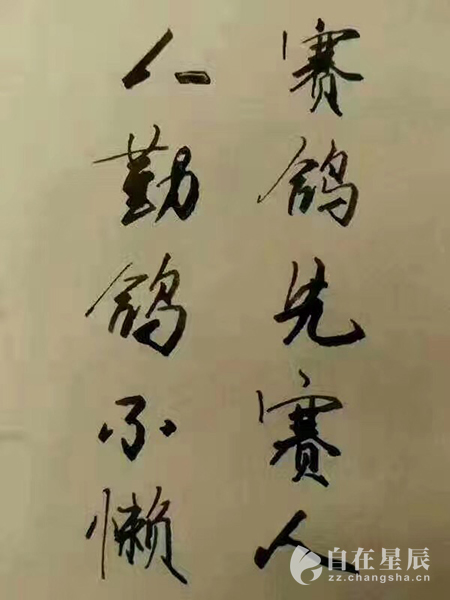 赛鸽先赛人
人勤鸽不懒
自在星辰
zz.changsha.cn